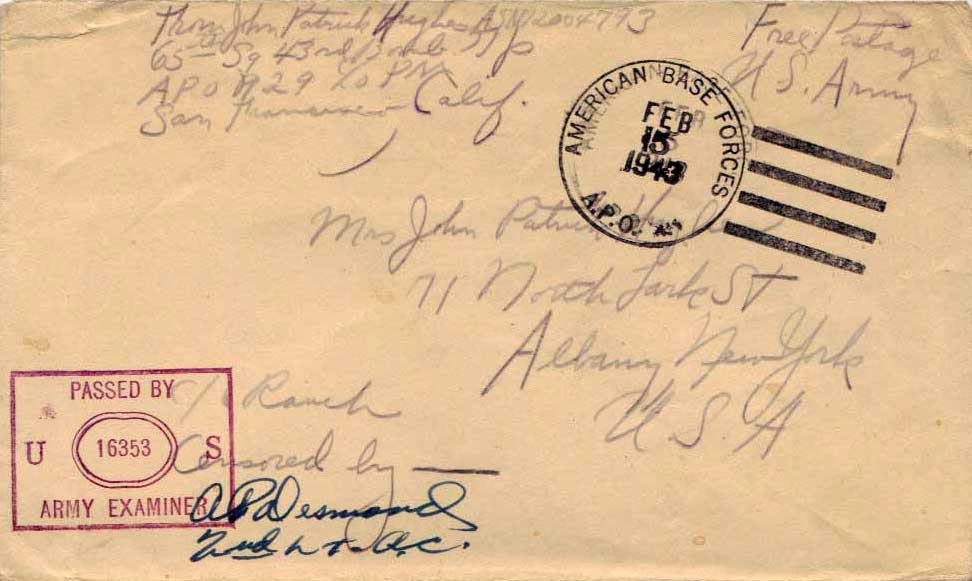 From John Patrick Hughes ASN 12004793
65th Sq 43rd Bomb Gp
A.P.O. 929 c/o P.M.
San Francisco Calif.
Free Postage
U.S. Army
AMERICAN BASE FORCES
FEB
15
1943
A.P.O.
Mrs John Patrick Hughes
71 North Lark St
Albany New York
U.S.A
PASSED BY
U 16353 S
ARMY EXAMINER
c/o Ranch
Censored by —
A P Desmond
2nd Lt. A.C.